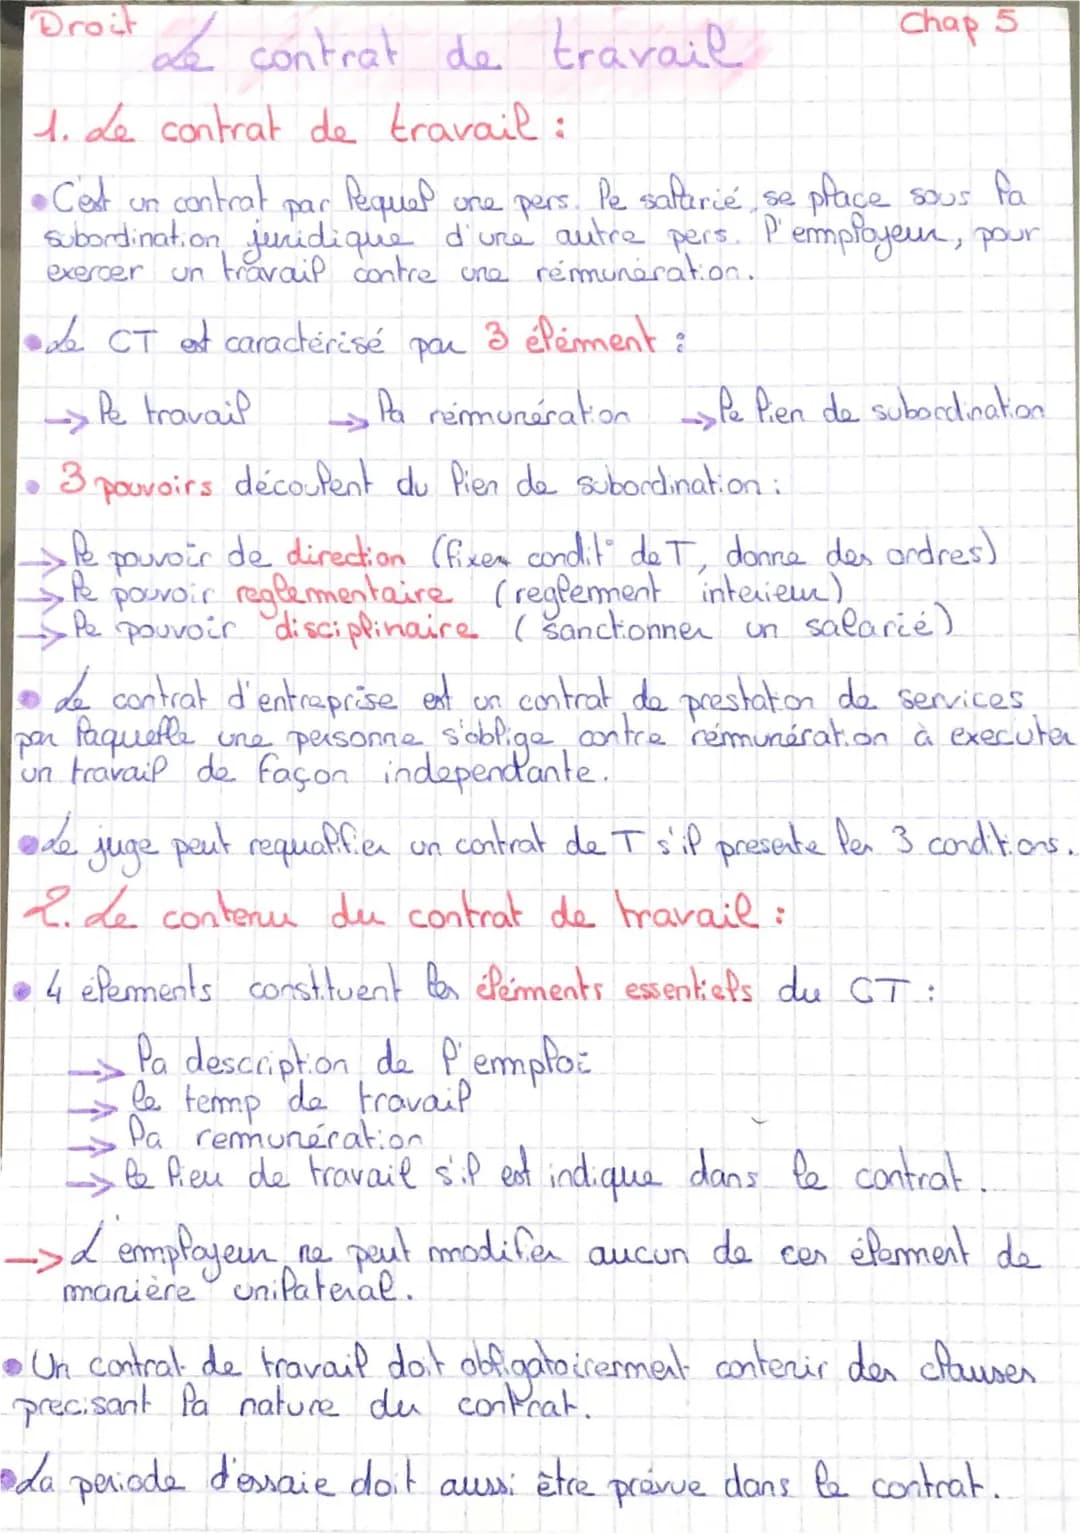 Droit
Chap 5
Le contrat de travail
1. Le contrat de travail :
• C'est un contrat par lequel une pers. le salarié, se place sous la
subordination juridique d'une autre pers. l'employeur, pour
exercer un travail contre une rémunération.
• Le CT est caractérisé par 3 élément :
→ le travail → la rémunération → le lien de subordination
• 3 pouvoirs découlent du lien de subordination :
→ le pouvoir de direction (fixer condit° de T, donne des ordres)
→ le pouvoir reglementaire (reglement interieur)
→ le pouvoir disciplinaire (sanctionner un salarié)
• Le contrat d'entreprise est un contrat de prestation de services
par laquelle une personne s'oblige contre rémunération à executer
un travail de façon independante.
• Le juge peut requalifier un contrat de T s'il presente les 3 conditions.
2. Le contenu du contrat de travail :
• 4 élements constituent les éléments essentiels du CT :
→ la description de l'emploi
→ le temp de travail
→ la remunération
→ le lieu de travail s'il est indique dans le contrat.
→ L'employeur ne peut modifier aucun de ces élement de
manière unilateral.
• Un contrat de travail doit obligatoirement contenir des clauses
precisant la nature du contrat.
• La periode d'essaie doit aussi être prévue dans le contrat.